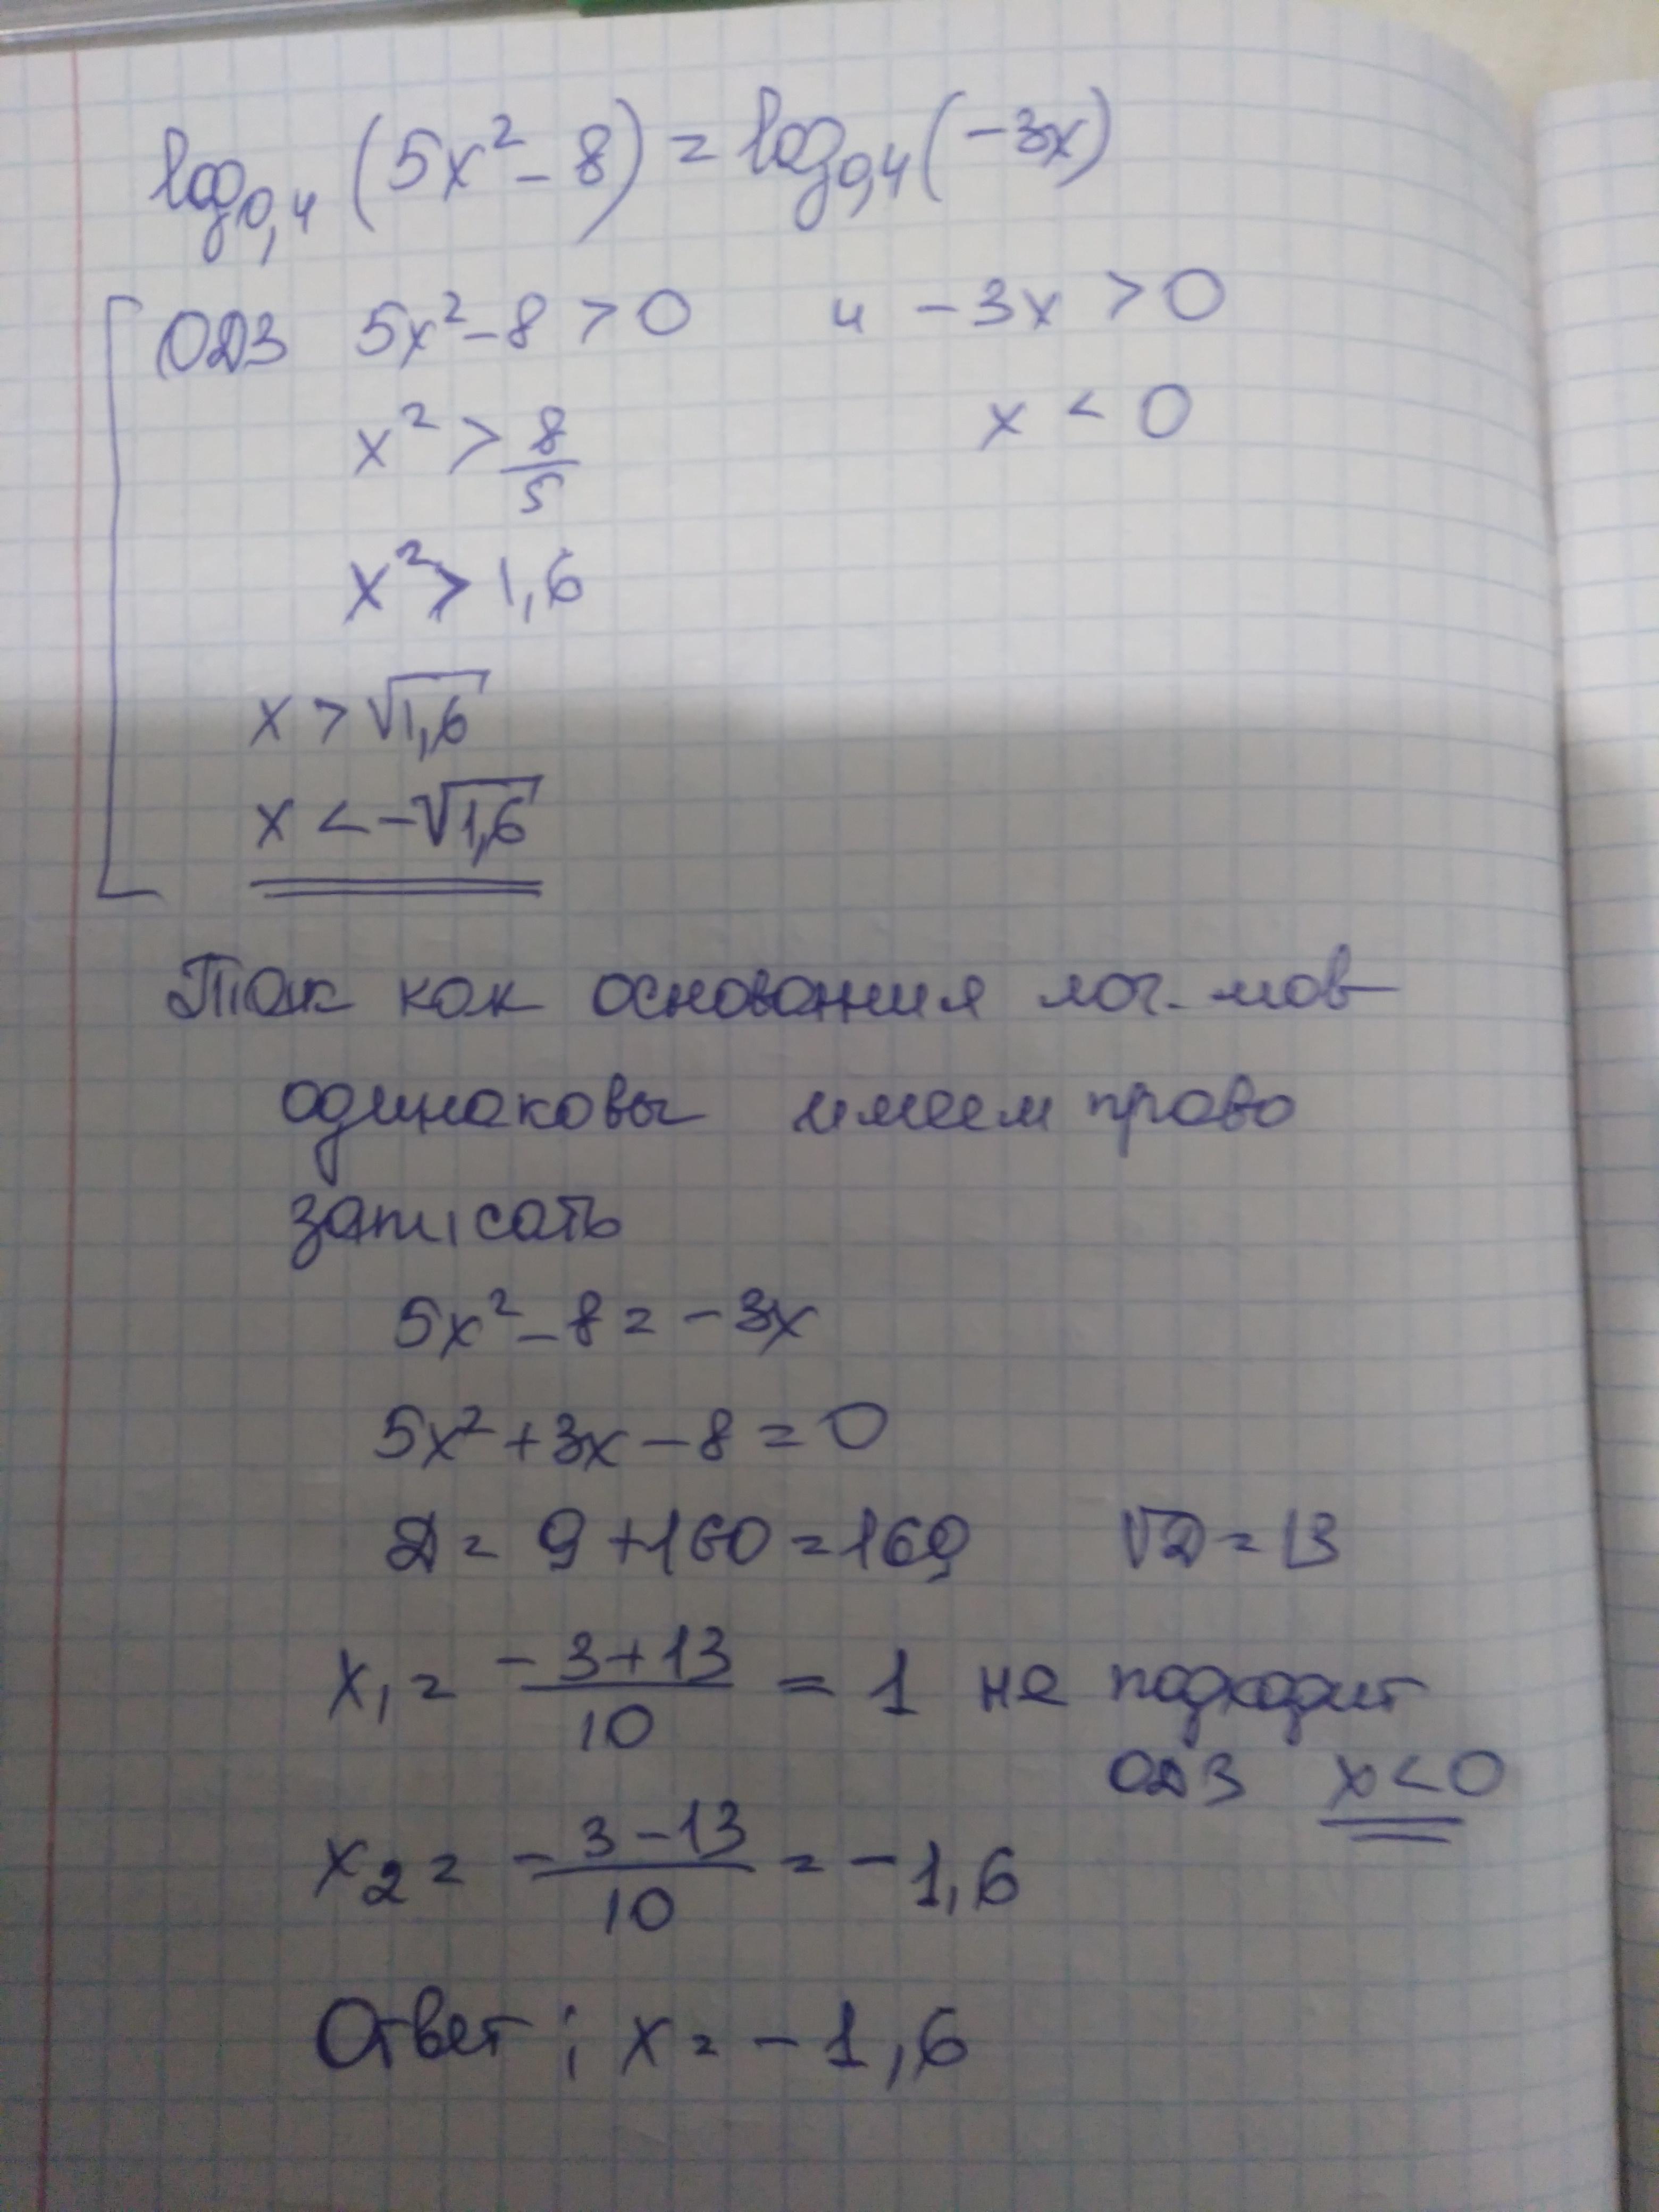 log₀,₄ (5x² - 8) = log₀,₄ (-3x)
ОДЗ 5x² - 8 > 0 и -3x > 0
x² > 8/5 x < 0
x² > 1,6
x > √1,6
x < -√1,6
Так как основания лог-мов
одинаковы имеем право
записать
5x² - 8 = -3x
5x² + 3x - 8 = 0
Д = 9 + 160 = 169 √Д = 13
x₁ = (-3+13)/10 = 1 не подходит
ОДЗ x < 0
x₂ = (-3-13)/10 = -1,6
Ответ: x = -1,6